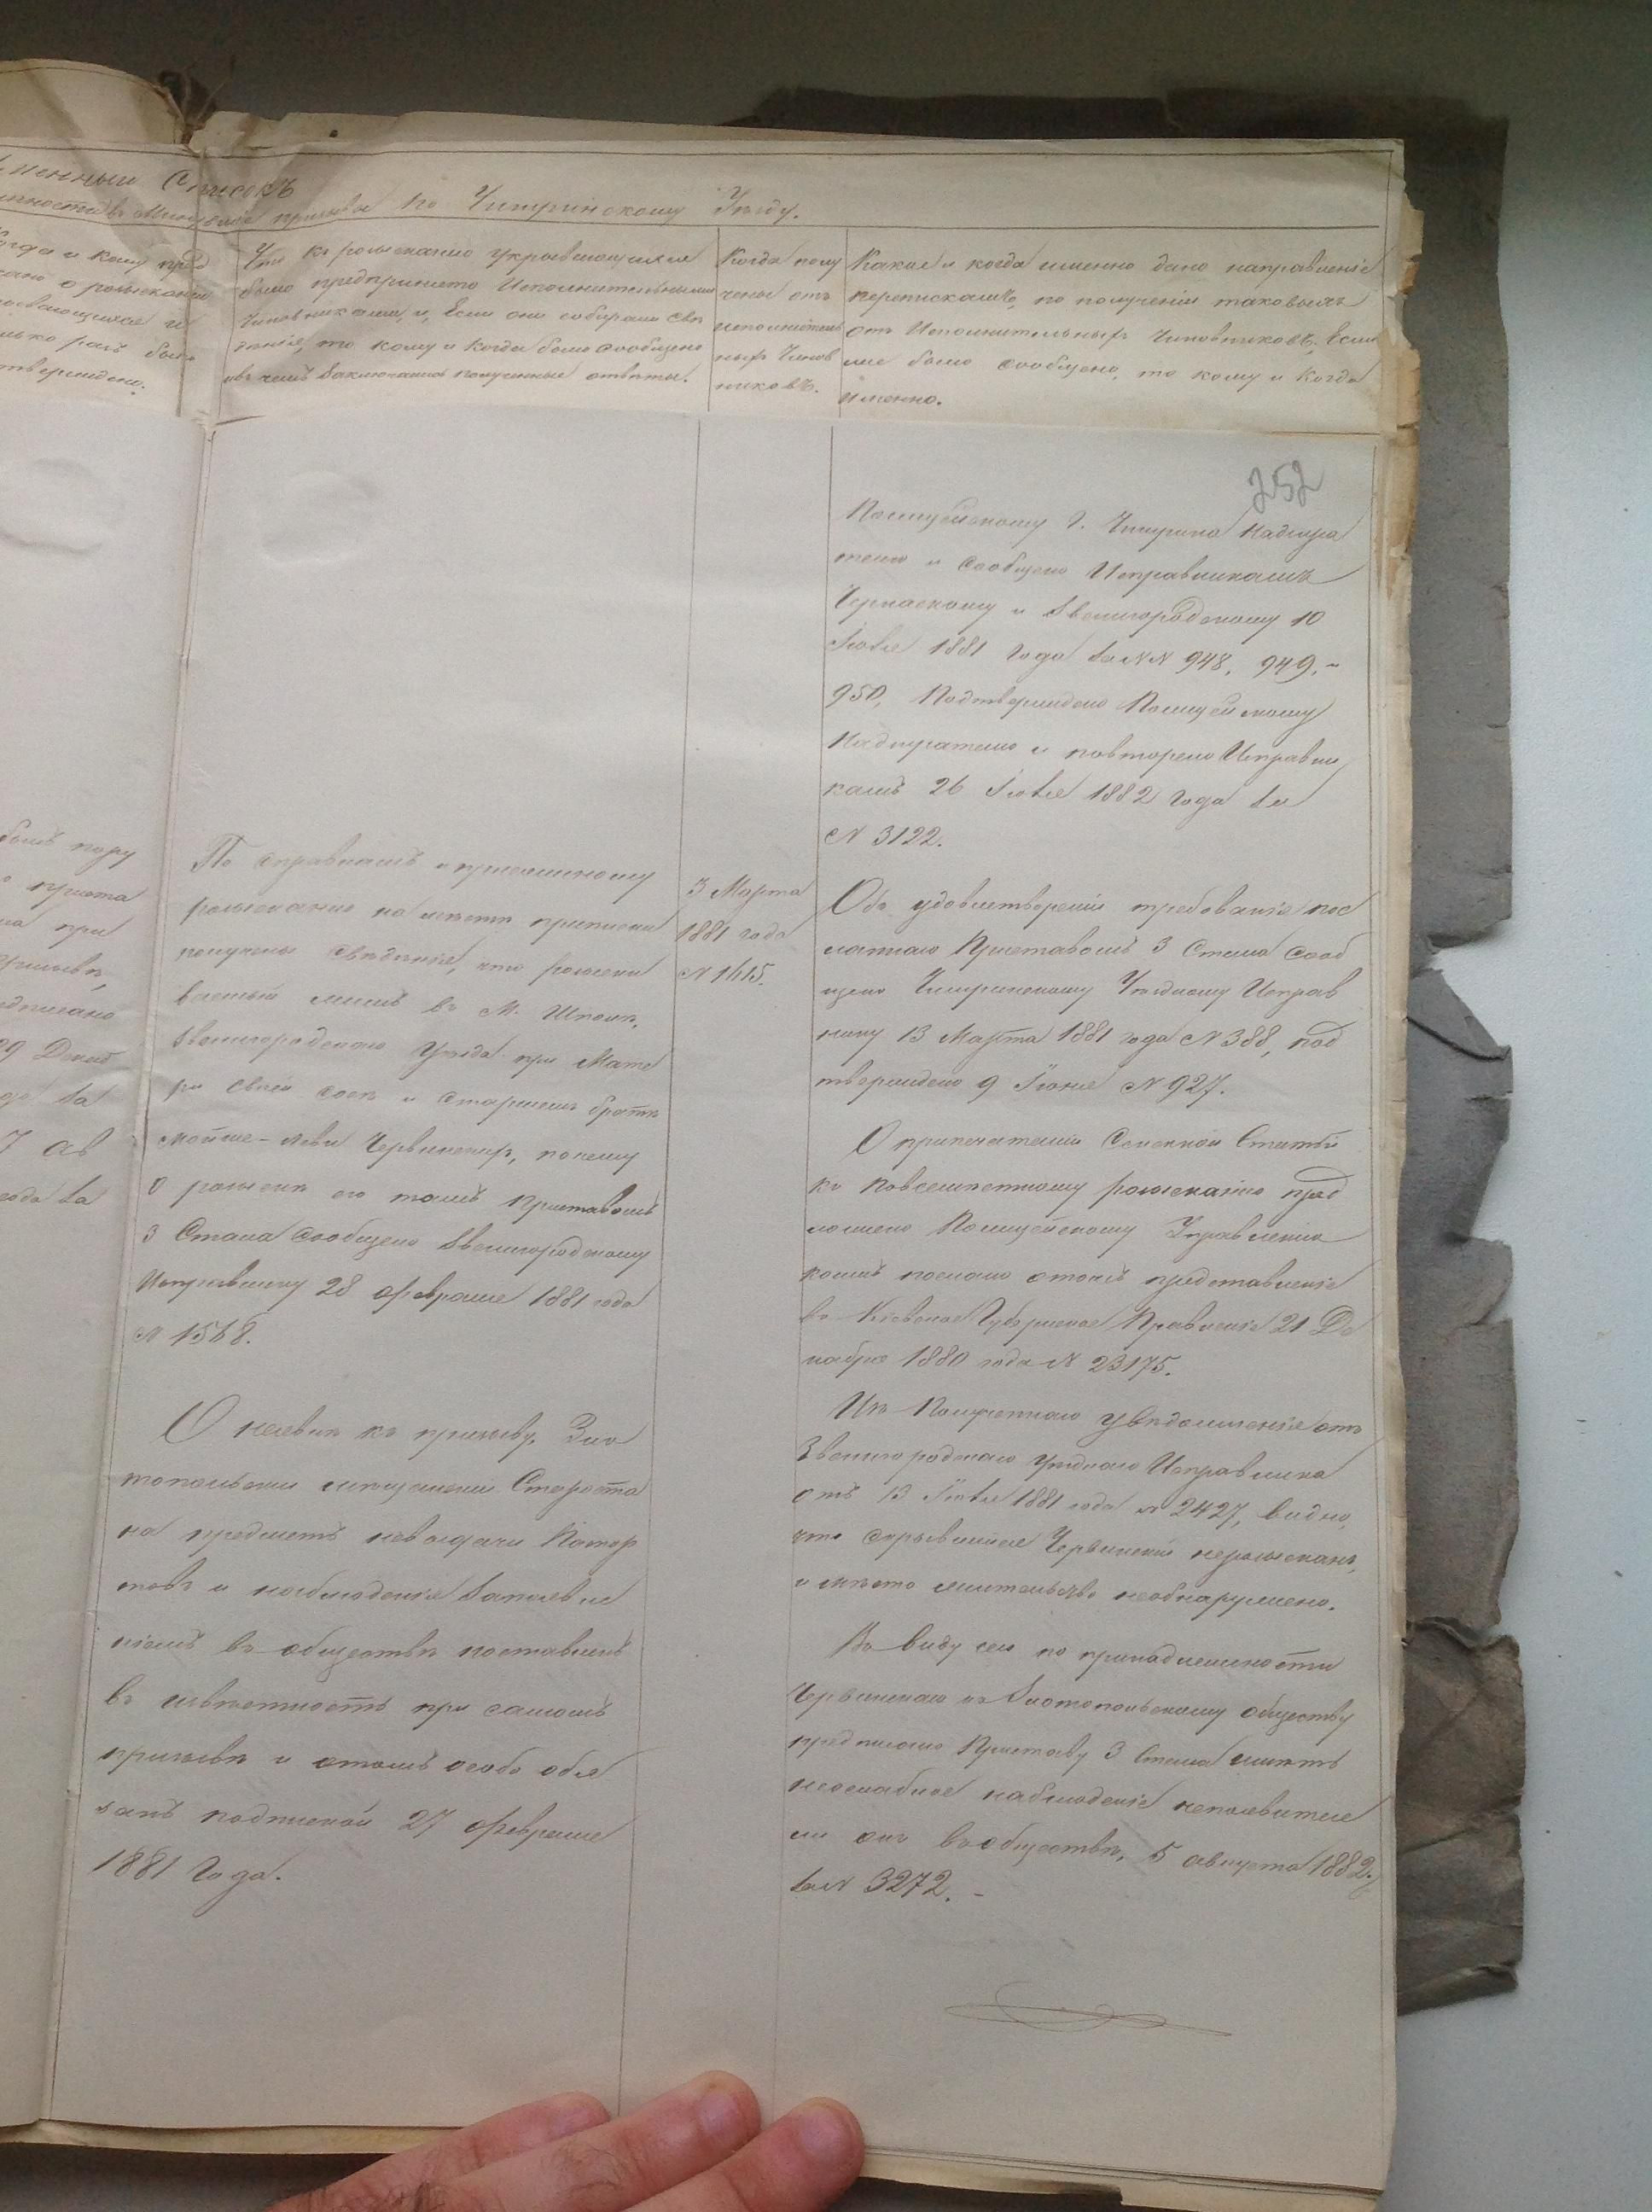 именный Списокъ
призыва по Чигиринскому Уѣзду.
Когда и кому пред
о розысканіи
укрывающихся и
только разъ было
подтверждено.
Что къ розысканію укрывающихся
было предпринято Исполнительными
Чиновниками, и, Если они собирали свѣ
денія, то кому и когда было сообщено
и въ чемъ заключались полученные отвѣты.
Когда полу
чены отъ
исполнитель
ныхъ Чинов
никовъ.
Какое и когда именно дано направленіе
перепискамъ, по полученіи таковыхъ
отъ Исполнительныхъ Чиновниковъ. Если
же было сообщено, то кому и когда
именно.
252
Полицейскому г. Чигирина Надзира
телю и сообщено Исправникамъ
Черкаскому и Звенигородскому 10
Іюля 1881 года за NN 948, 949, и
950, Подтверждено Полицейскому
Надзирателю и повторено Исправни
камъ 26 Іюля 1882 года за
N 3122.
пору
приста
при
призывѣ,
предписано
29 Декаб
за
7 ав
года за
По справкамъ и
розысканію на мѣстѣ приписки
получены свѣдѣнія, что розыски
ваемый живетъ въ М. Шполѣ,
Звенигородскаго Уѣзда при Мате
ри своей и старшемъ братѣ
Мойше-Лейви Червинскихъ, почему
о розыскѣ его тамъ Приставомъ
3 Стана сообщено Звенигородскому
Исправнику 28 февраля 1881 года
N 1568.
3 Марта
1881 года
N 1615.
Объ удовлетвореніи требованія пос
ланнаго Приставомъ 3 Стана сооб
щено Чигиринскому Уѣздному Исправ
нику 13 Марта 1881 года N 388, под
тверждено 9 Іюня N 927.
О припечатаніи Сыскной Статьи
къ повсемѣстному розысканію пред
ложено Полицейскому Управленію
коимъ послано о томъ представленіе
въ Кіевское Губернское Правленіе 21 Де
кабря 1880 года N 23175.
О неявкѣ къ призыву, Зла
топольскій мѣщанскій Староста
на предметъ невыдачи Паспор
товъ и наблюденія за появле
ніемъ въ обществѣ поставленъ
въ извѣстность при самомъ
призывѣ и о томъ особо обя
занъ подпиской 27 февраля
1881 года.
Изъ Полученнаго увѣдомленія отъ
Звенигородскаго Уѣзднаго Исправника
отъ 13 Іюля 1881 года N 2427, видно,
что скрывшійся Червинскій неразысканъ,
и мѣсто жительства необнаружено.
Въ виду сего по принадлежности
Червинскаго къ Златопольскому обществу
предписано Приставу 3 Стана имѣть
неослабное наблюденіе непоявится
ли онъ въ обществѣ, 5 августа 1882 г.
за N 3272. -